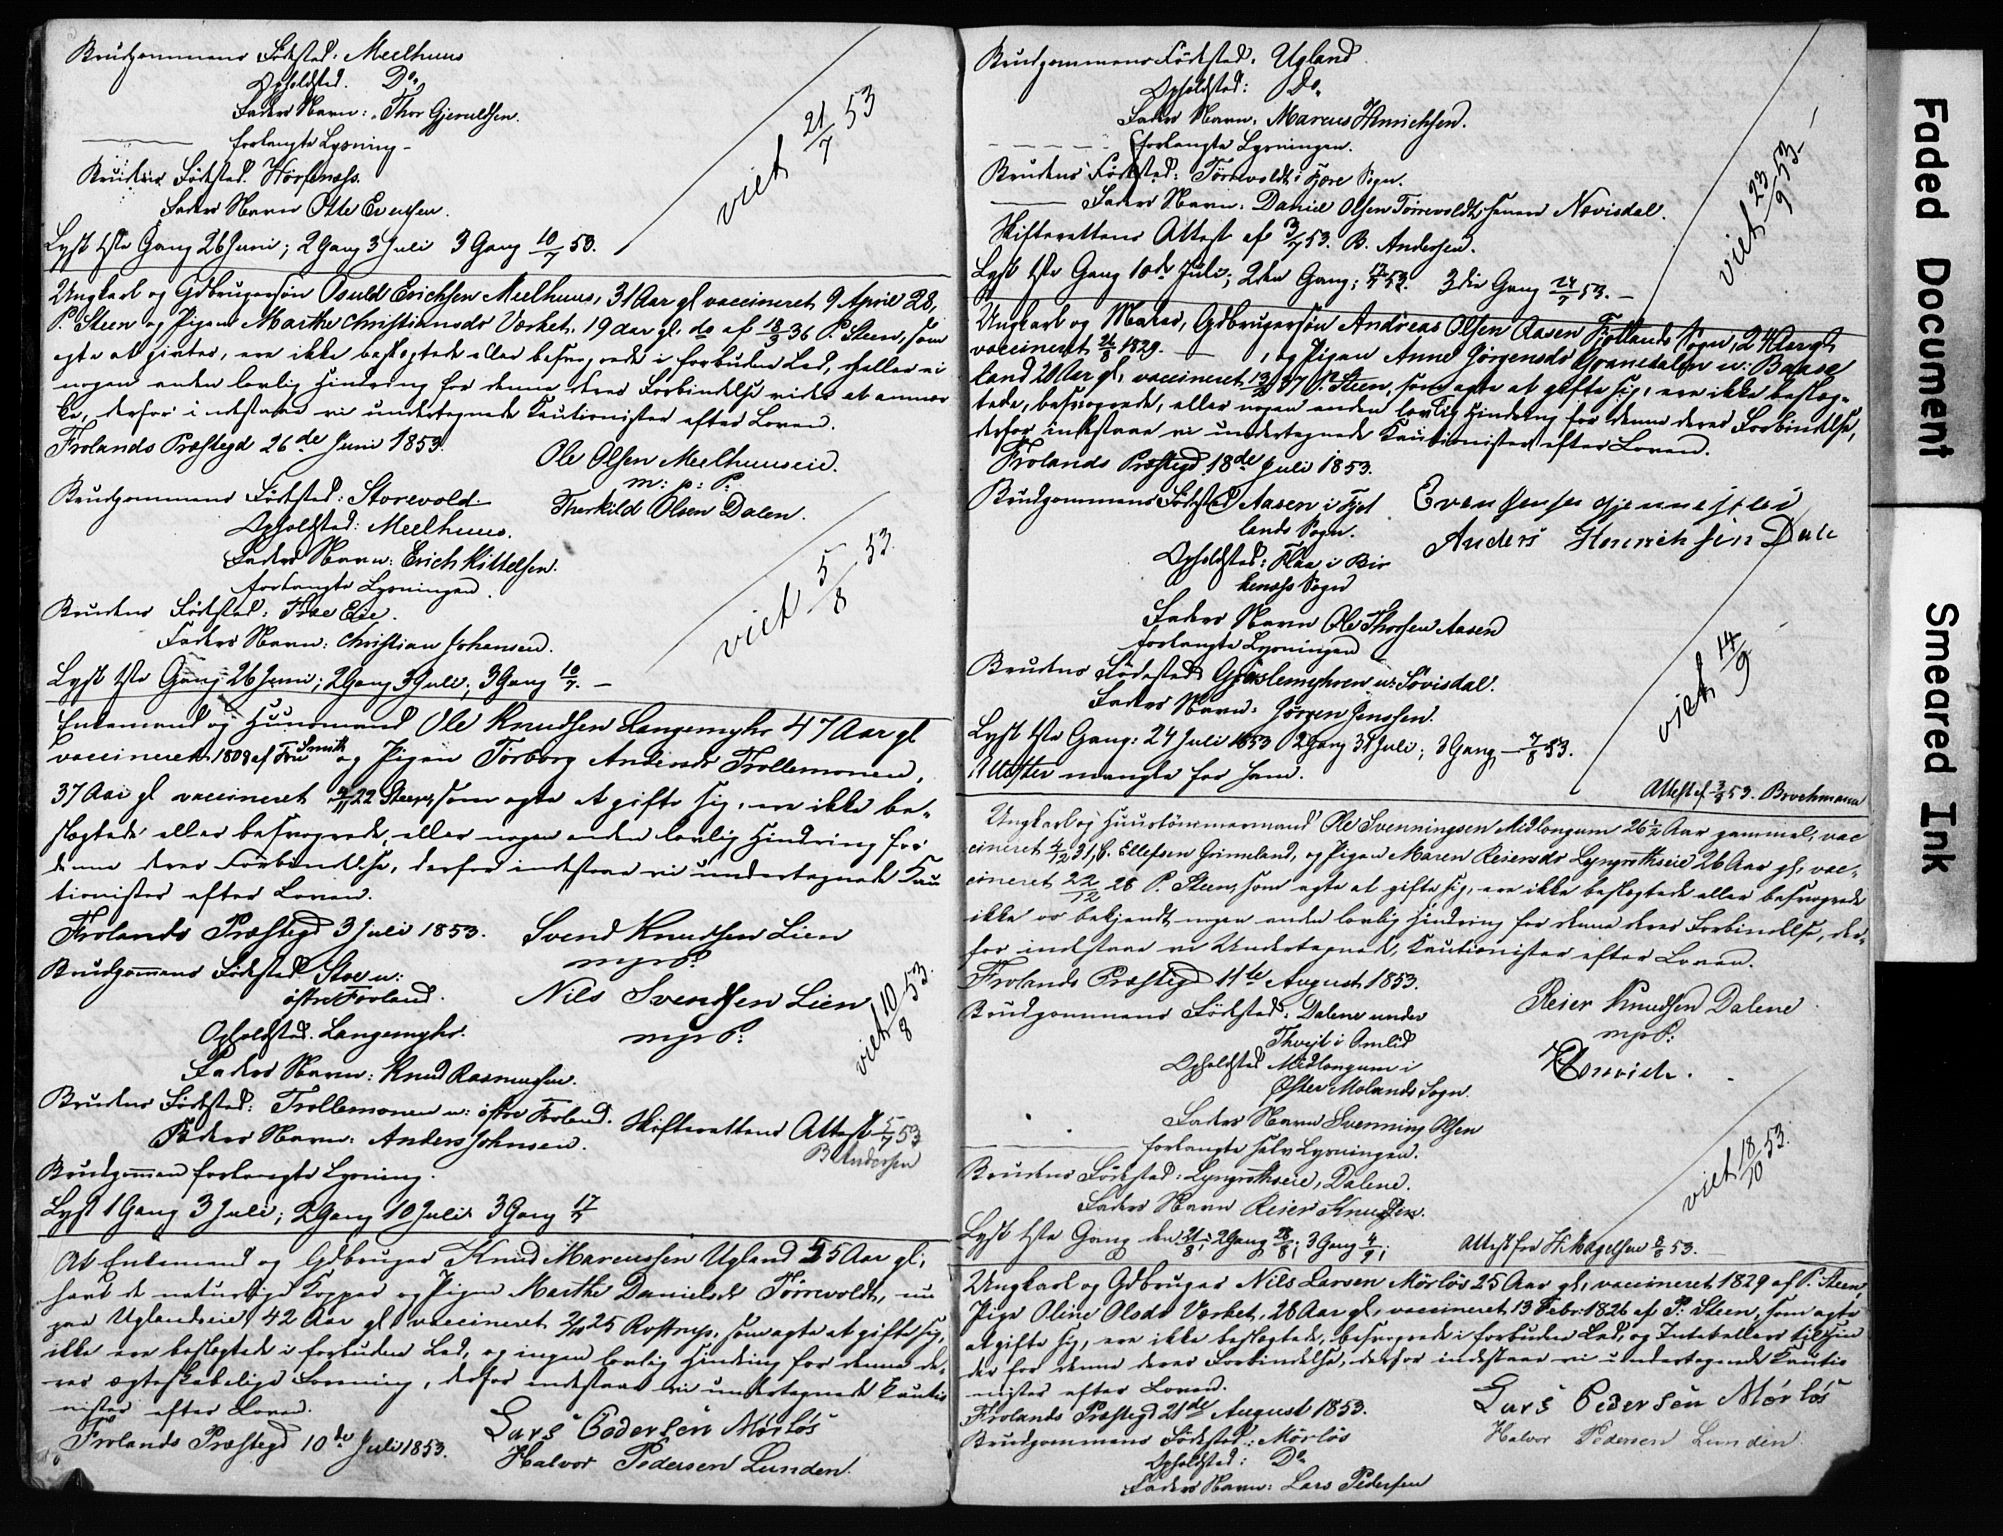 Brudgommens Födested: Meelhuus
Opholdsted. Do,
Faders Navn: Thor Gjeruldsen.
forlangte Lysning –
Brudens Födested. Hörsnæss.
Faders Navn Otte Evensen.
Lyst 1ste Gang 26 Juni; 2 Gang 3 Juli 3 Gang 10/7 53.
viet 21/7 53
Ungkarl og Gdbrugersön Osuld Erichsen Meelhuus, 31 Aar gl vaccineret 9 April 28,
P. Steen og Pigen Marthe Christiansdr Værket, 19 aar gl. do af 18/9 36 P. Steen, som
agte at giftes, ere ikke beslægtede eller besvogrede i forbuden Led, heller ei
nogen anden lovlig Hindring for denne deres Forbindelse vides at anmær
ke, derfor indestaae vi undertegnede Kautionister efter Loven.
Frolands Præstegd 26de Juni 1853.
Ole Olsen Meelhuuseie.
m: p: P:
Therkild Olsen Dalen.
Brudgommens Födested: Storevold.
Opholdsted: Meelhuus.
Faders Navn: Erich Kittelsen.
forlangte Lysningen.
Brudens Födested: Froe Eie.
Faders Navn: Christian Johansen.
Lyst 1ste Gang 26 Juni; 2 Gang 3 Juli; 3 Gang 10/7. –
viet 5/8 53.
Enkemand og Huusmand Ole Knudsen Langemyhr 47 Aar gl
vaccineret 1809 af Fru Smith og Pigen Torborg Andersdr Trollemonen,
37 Aar gl vaccineret 4/11 22 Steen, som agte at gifte sig, ere ikke be-
slægtede eller besvogrede, eller nogen anden lovlig Hindring for
denne deres Forbindelse, derfor indestaae vi undertegnede Kau
tionister efter Loven.
Frolands Præstegd 3 Juli 1853.
Svend Knudsen Lien
mpP:
Nils Svendsen Lien
mpP:
Brudgommens Födested Stoe u:
östre Froland.
Opholdsted. Langemyhr.
Faders Navn: Knud Rasmussen.
viet 10/8 53.
Brudens Födested: Trollemonen u: östre Froland.
Skifterettens Attest 5/7 53
B Andersen
Faders Navn: Anders Johnsen.
Brudgommen forlangte Lysning.
Lyst 1 Gang 3 Juli; 2 Gang 10 Juli 3 Gang 17/7
At Enkemand og Gdbruger Knud Marcussen Ugland 55 Aar gl,
havt de naturlige Kopper og Pigen Marthe Danielsdr Törrevoldt, nu
paa Uglandseie 42 Aar gl vaccineret 2/10 25 Rostrup, som agte at gifte sig,
ikke ere beslægtede i forbuden Led, og ingen lovlig Hindring for denne de-
res ægteskabelige Forening, derfor indestaae vi undertegnede Kautio
nister efter Loven.
Frolands Præstegd 10de Juli 1853.
Lars Pedersen Mörlös
Halvor Pedersen Lunden.
Brudgommens Födested: Ugland
Opholdsted: Do.
Faders Navn: Marcus Henrichsen.
forlangte Lysningen.
Brudens Födested: Törrevoldt i Fjære Sogn.
Faders Navn: Daniel Olsen Törrevoldt, senere Nævisdal.
Skifterettens Attest af 3/7 53. B. Andersen.
Lyst 1ste Gang 10de Juli; 2den Gang: 17/7 53. 3die Gang 24/7 53. –
viet 23/9 53 –
Ungkarl og Gdbrugersön Andreas Olsen Aasen Fjotlands Sogn, 24 Aar gl,
vaccineret 24/8 1829. – , og Pigen Anne Jörgensdr
land 20 Aar gl, vaccineret 13/10 37 P. Steen, som agte at gifte sig, ere ikke beslæg-
tede, besvogrede, eller nogen anden lovlig Hindring for denne deres Forbindelse,
derfor indestaae vi undertegnede Kautionister efter Loven.
Frolands Præstegd 18de Juli 1853.
Brudgommens Födested Aasen i Fjot
lands Sogn.
Even Jensen
Anders Henrichsen Dale
Opholdsted: Flaa i Bir
kenæss Sogn
Faders Navn Ole Thorsen Aasen
forlangte Lysningen
Brudens Födested Gjöslemyhren u: Sövisdal.
Faders Navn: Jörgen Jenssen.
Lyst 1ste Gang: 24 Juli 1853 2 Gang 31 Juli; 3 Gang – 7/8 53.
Attester mangle for ham.
viet 14/9
Attest af 3/9 53. Brochmann
Ungkarl og Huustömmermand Ole Svenningsen Midlongum 26½ Aar gammel, vac
cineret 4/12 31, C. Ellefsen Grimeland, og Pigen Maren Reiersdr Lyngrothseie 26 Aar gl, vac-
cineret 22/12 28 P. Steen, som agte at gifte sig, ere ikke beslægtede eller besvogrede
ikke os bekjendt nogen anden lovlig Hindring for denne deres Forbindelse, der-
for indestaae vi Undertegnede, Kautionister efter Loven.
Frolands Præstegd 11te August 1853.
Reier Knudsen Dalene
mpP:
Brudgommens Födested: Dalene under
Thveit i Omlid
Opholdsted Midlongum i
Öster Molands Sogn.
Faders Navn Svenning Olsen
forlangte selv Lysningen.
Brudens Födested: Lyngrothseie, Dalene.
Faders Navn Reier Knudsen.
viet 18/10 53.
Lyst 1ste Gang den 21/8; 2 Gang 28/8; 3 Gang 4/9;
Attest fra H. Magelssen 8/8 53.
Ungkarl og Gdbruger Nils Larsen Mörlös 25 Aar gl, vaccineret 1829 af P. Steen,
Pige Oline Olsdr Værket, 28 Aar gl, vaccineret 13 Febr: 1826 af P. Steen, som agte
at gifte sig, ere ikke beslægtede, besvogrede i forbuden Led, og
der for denne deres Forbindelse, derfor indestaae vi undertegnede Kautio
nister efter Loven.
Frolands Præstegd 21de August 1853.
Lars Pedersen Mörlös
Halvor Pedersen Lunden
Brudgommens Födested: Mörlös
Opholdsted: Do
Faders Navn: Lars Pedersen
Faded Document
Smeared Ink